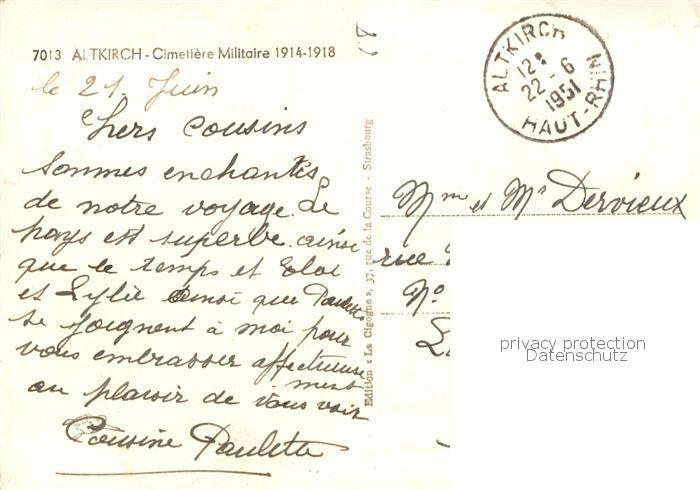 7013 ALTKIRCH - Cimetière Militaire 1914-1918
le 21 Juin
Chers Cousins
Sommes enchantés
de notre voyage. Le
pays est superbe ainsi
que le temps et Eloi
et Lylie ainsi que Paulette
se joignent à moi pour
vous embrasser affectueuse
ment
au plaisir de vous voir
Cousine Paulette
Edition « La Cigogne », 37, rue de la Course - Strasbourg
ALTKIRCH
12
22-6
1951
HAUT-RHIN
Mm et Mr Dervieux
rue
No
privacy protection
Datenschutz